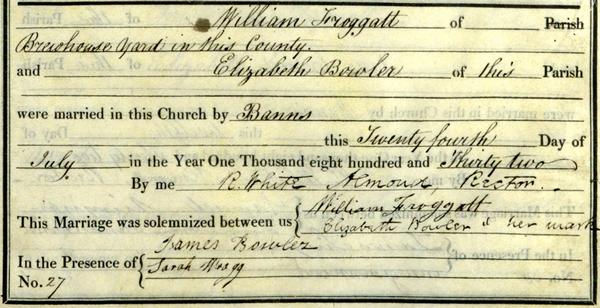 William Froggatt of Parish
Brewhouse Yard in this County.
and Elizabeth Bowler of this Parish
were married in this Church by Banns
this Twenty fourth Day of
July in the Year One Thousand eight hundred and Thirty two
By me R. White Almond Rector.
This Marriage was solemnized between us { William Froggatt
Elizabeth Bowler X her mark
In the Presence of { James Bowler
Sarah Wragg
No. 27